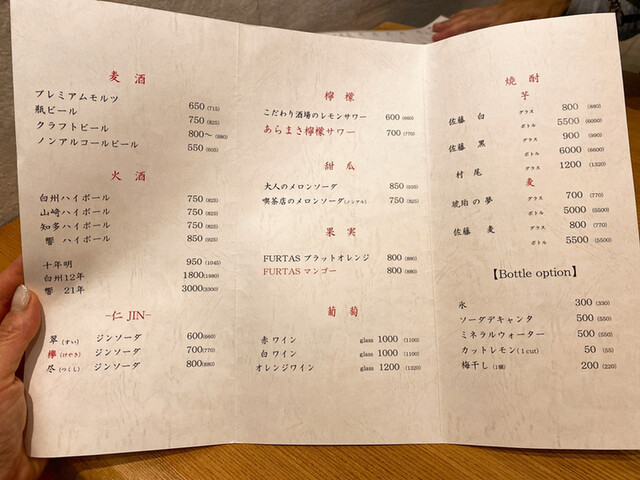 麦 酒
プレミアムモルツ 650 (715)
瓶ビール 750 (825)
クラフトビール 800〜 (880)
ノンアルコールビール 550 (605)
火 酒
白州ハイボール 750 (825)
山崎ハイボール 750 (825)
知多ハイボール 750 (825)
響 ハイボール 850 (925)
十年明 950 (1045)
白州12年 1800 (1980)
響 21年 3000 (3300)
-仁 JIN-
翠 (すい) ジンソーダ 600 (660)
欅 (けやき) ジンソーダ 700 (770)
尽 (つくし) ジンソーダ 800 (880)
檸 檬
こだわり酒場のレモンサワー 600 (660)
あらまさ檸檬サワー 700 (770)
甜 瓜
大人のメロンソーダ 850 (935)
喫茶店のメロンソーダ (ノンアル) 750 (825)
果 実
FURTAS ブラットオレンジ 800 (880)
FURTAS マンゴー 800 (880)
葡 萄
赤 ワイン glass 1000 (1100)
白 ワイン glass 1000 (1100)
オレンジワイン glass 1200 (1320)
焼 酎
芋
佐藤 白 グラス 800 (880)
ボトル 5500 (6000)
佐藤 黒 グラス 900 (990)
ボトル 6000 (6600)
村 尾 グラス 1200 (1320)
麦
琥珀の夢 グラス 700 (770)
ボトル 5000 (5500)
佐藤 麦 グラス 800 (880)
ボトル 5500 (5500)
【Bottle option】
氷 300 (330)
ソーダデキャンタ 500 (550)
ミネラルウォーター 500 (550)
カットレモン (1cut) 50 (55)
梅干し (1個) 200 (220)